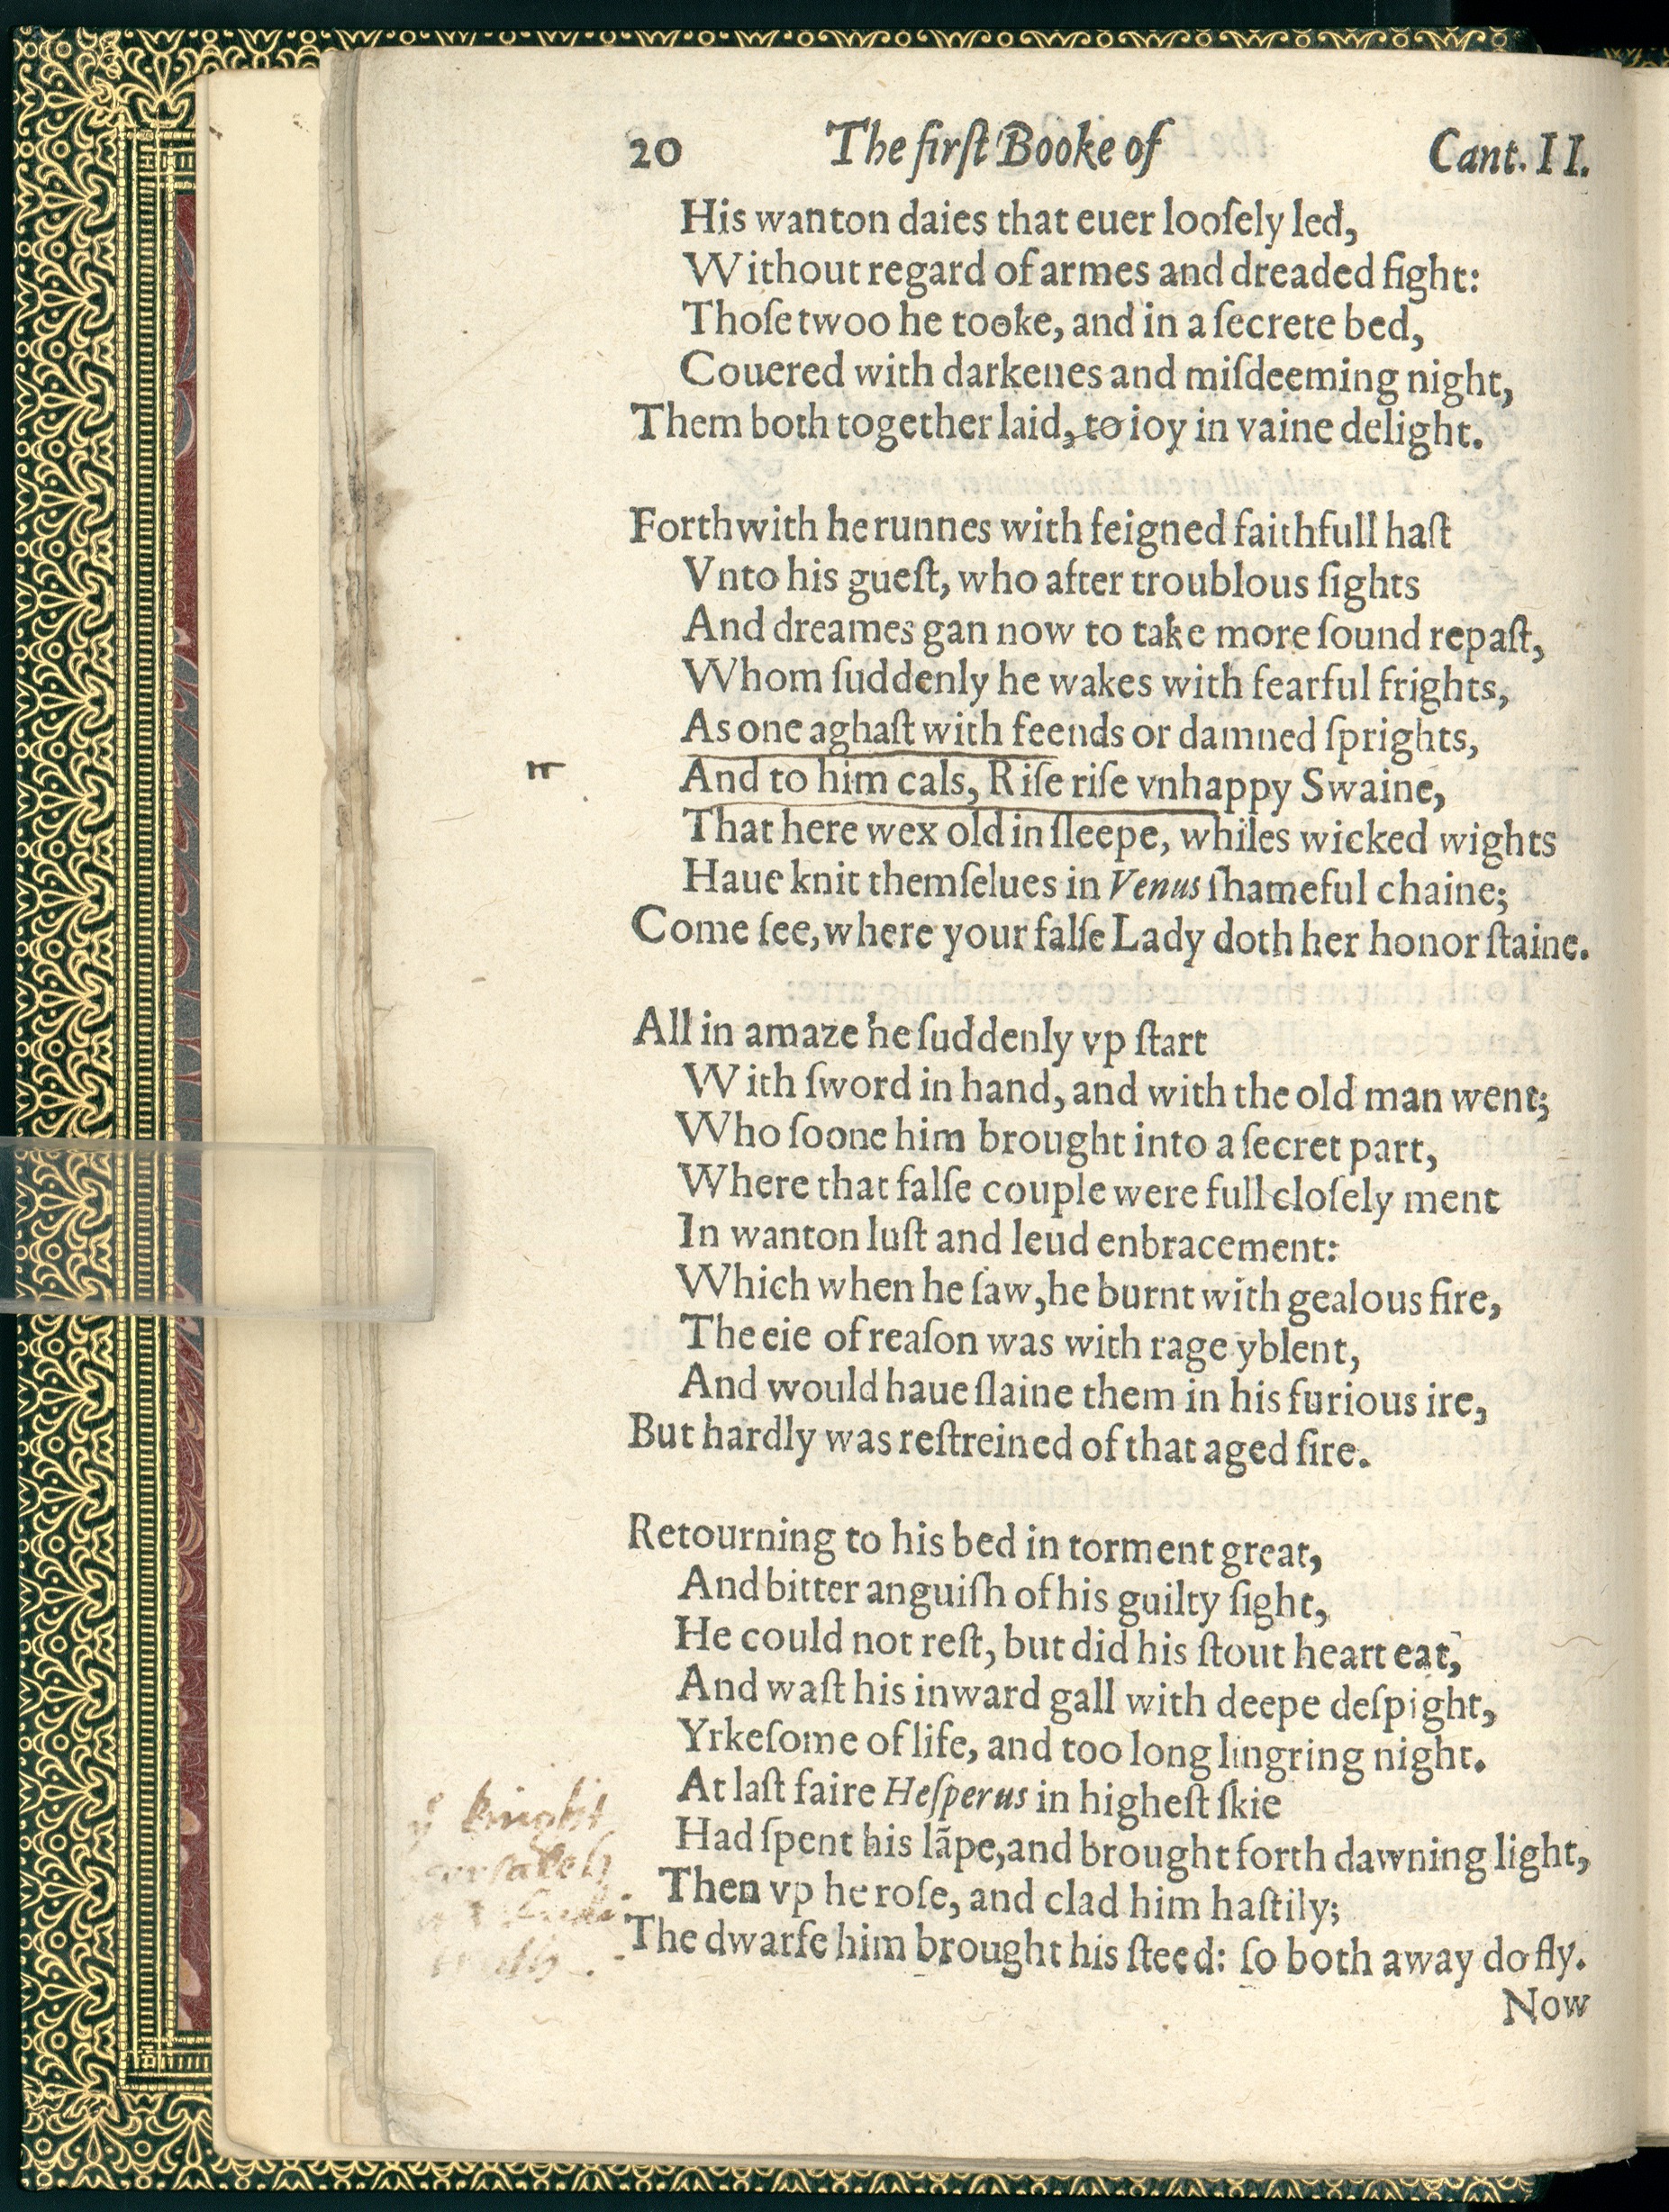 20 The firſt Booke of Cant. II.
His wanton daies that euer looſely led,
Without regard of armes and dreaded fight:
Thoſe twoo he tooke, and in a ſecrete bed,
Couered with darkenes and miſdeeming night,
Them both together laid, to ioy in vaine delight.
Forthwith he runnes with feigned faithfull haſt
Vnto his gueſt, who after troublous ſights
And dreames gan now to take more ſound repaſt,
Whom ſuddenly he wakes with fearful frights,
As one aghaſt with feends or damned ſprights,
And to him cals, Riſe riſe vnhappy Swaine,
That here wex old in ſleepe, whiles wicked wights
Haue knit themſelues in Venus ſhameful chaine;
Come ſee, where your falſe Lady doth her honor ſtaine.
All in amaze he ſuddenly vp ſtart
With ſword in hand, and with the old man went;
Who ſoone him brought into a ſecret part,
Where that falſe couple were full cloſely ment
In wanton luſt and leud enbracement:
Which when he ſaw, he burnt with gealous fire,
The eie of reaſon was with rage yblent,
And would haue ſlaine them in his furious ire,
But hardly was reſtreined of that aged ſire.
Retourning to his bed in torment great,
And bitter anguiſh of his guilty ſight,
He could not reſt, but did his ſtout heart eat,
And waſt his inward gall with deepe deſpight,
Yrkeſome of life, and too long lingring night.
At laſt faire Heſperus in higheſt ſkie
knight
Had ſpent his lãpe, and brought forth dawning light,
Then vp he roſe, and clad him haſtily;
The dwarfe him brought his ſteed: ſo both away do fly.
Now